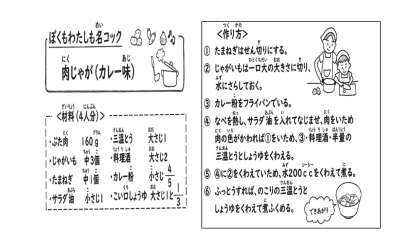 ぼくもわたしも名コック
肉じゃが(カレー味)
<材料(4人分)>
・ぶた肉 160g
・じゃがいも 中3個
・たまねぎ 中1個
・サラダ油 小さじ1
・三温とう 大さじ1
・料理酒 大さじ2
・カレー粉 小さじ4/5
・こい口しょうゆ 大さじ1と1/3
<作り方>
① たまねぎはせん切りにする。
② じゃがいもは一口大の大きさに切り、
水にさらしておく。
③ カレー粉をフライパンでいる。
④ なべを熱し、サラダ油を入れてなじませ、肉をいため
肉の色がかわれば①をいため、③・料理酒・半量の
三温とうとしょうゆをくわえる。
⑤ ④に②をくわえていため、水200ccをくわえて煮る。
⑥ ふっとうすれば、のこりの三温とうと
しょうゆをくわえて煮ふくめる。
できあがり